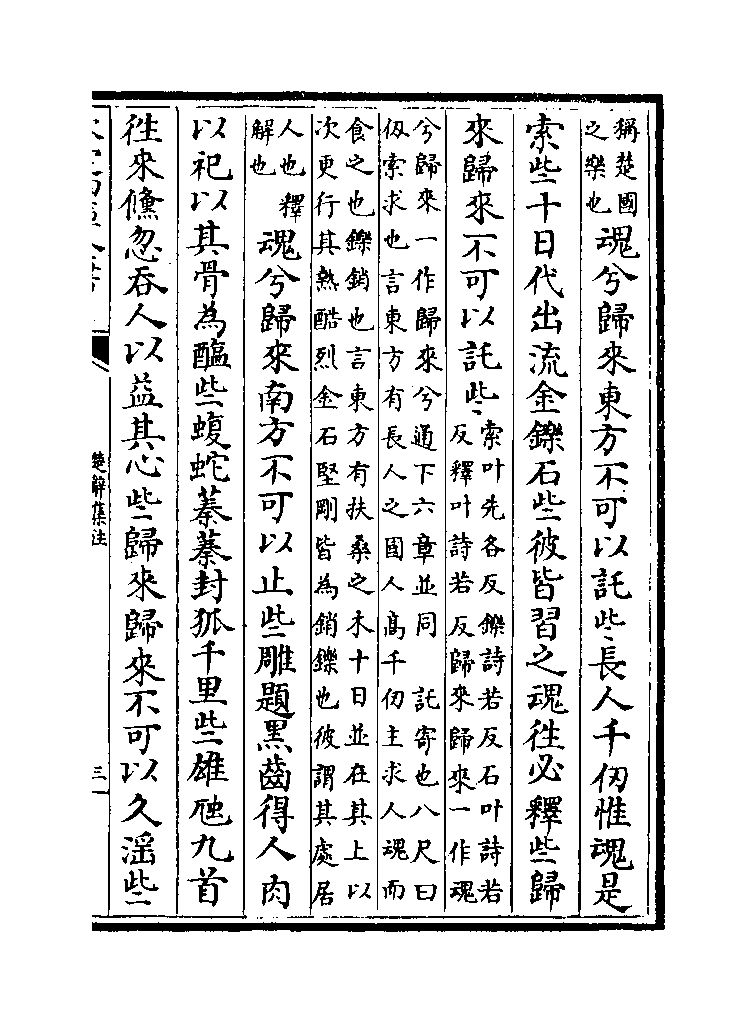 稱楚國
之樂也
魂兮歸來東方不可以託些長人千仞惟魂是
索些十日代出流金鑠石些彼皆習之魂徃必釋些歸
來歸來不可以託些
索叶先各反鑠詩若反石叶詩若
反釋叶詩若反歸來歸來一作魂
兮歸來一作歸來兮通下六章並同　託寄也八尺曰
仭索求也言東方有長人之國人髙千仞主求人魂而
食之也鑠銷也言東方有扶桑之木十日並在其上以
次更行其熱酷烈金石堅剛皆為銷鑠也彼謂其處居
人也　釋
解也
魂兮歸來南方不可以止些雕題黑齒得人肉
以祀以其骨為醢些蝮蛇蓁蓁封狐千里些雄虺九首
徃來儵忽吞人以益其心些歸來歸來不可以久淫些
楚辭集注
三